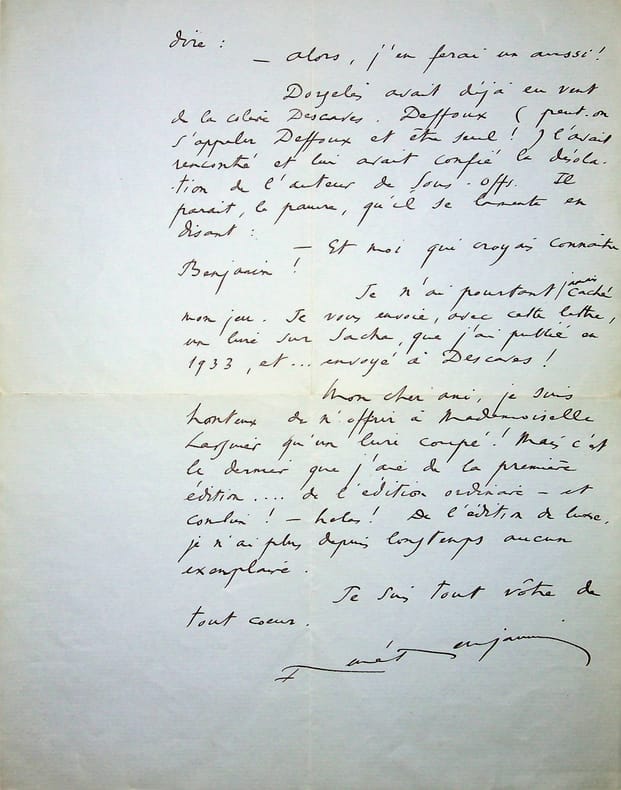 dire :
— Alors, j'en ferai un aussi !
Dorgelès avait déjà eu vent
de la colère Descaves. Deffoux ( peut-on
s'appeler Deffoux et être seul ! ) l'avait
rencontré et lui avait confié la désola-
-tion de l'auteur de Sous-offs. Il
paraît, le pauvre, qu'il se lamente en
disant :
— Et moi qui croyais connaître
Benjamin !
Je n'ai pourtant jamais caché
mon jeu. Je vous envoie, avec cette lettre,
un livre sur Sacha, que j'ai publié en
1933, et... envoyé à Descaves !
Mon cher ami, je suis
honteux de n'offrir à Mademoiselle
Larguier qu'un livre coupé ! Mais c'est
le dernier que j'aie de la première
édition.... de l'édition ordinaire — et
! — hélas ! De l'édition de luxe,
je n'ai plus depuis longtemps aucun
exemplaire.
Je suis tout vôtre de
tout coeur.
René Benjamin